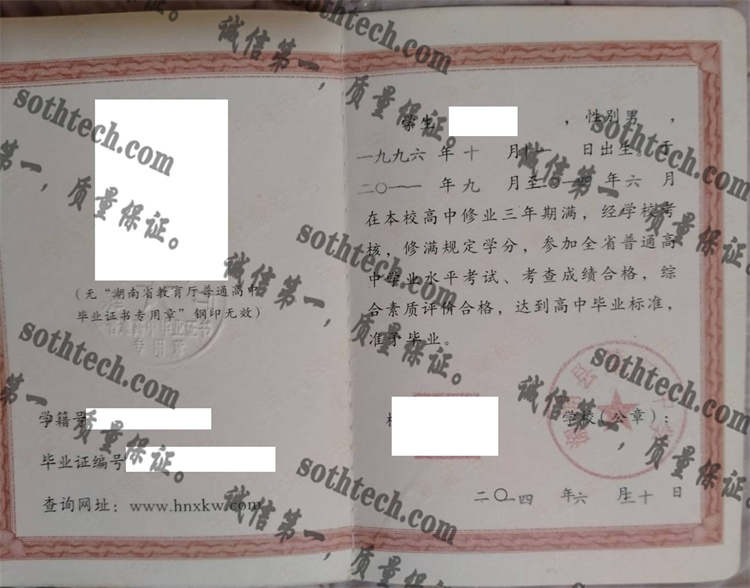 (无“湖南省教育厅普通高中
毕业证书专用章”钢印无效)
专用章
学籍号
毕业证编号
查询网址：www.hnxkw.com
学生 ，性别男 ，
一九九六 年 十 月 日出生。于
二〇一一 年 九 月至二〇一四 年 六 月
在本校高中修业三年期满，经学校考
核，修满规定学分，参加全省普通高
中学业水平考试、考查成绩合格，综
合素质评价合格，达到高中毕业标准，
准予毕业。
学校(公章)：
二〇一四 年 六 月 十 日
sothtech.com
诚信第一，质量保证。
sothtech.com
诚信第一，质量保证。
sothtech.com
诚信第一，质量保证。
sothtech.com
诚信第一，质量保证。
sothtech.com
诚信第一，质量保证。
sothtech.com
诚信第一，质量保证。
sothtech.com